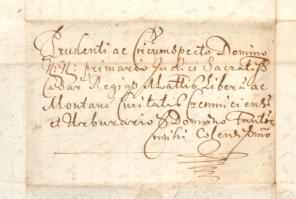 Prudenti ac Circumspecto Domino
N: N: primario Judici Sacratiss
Cæsar Regiæq Mattis Liberæ ac
Montanæ Civitatis Cremniciensi
et Urburario &c Domino
mihi Colendissimo